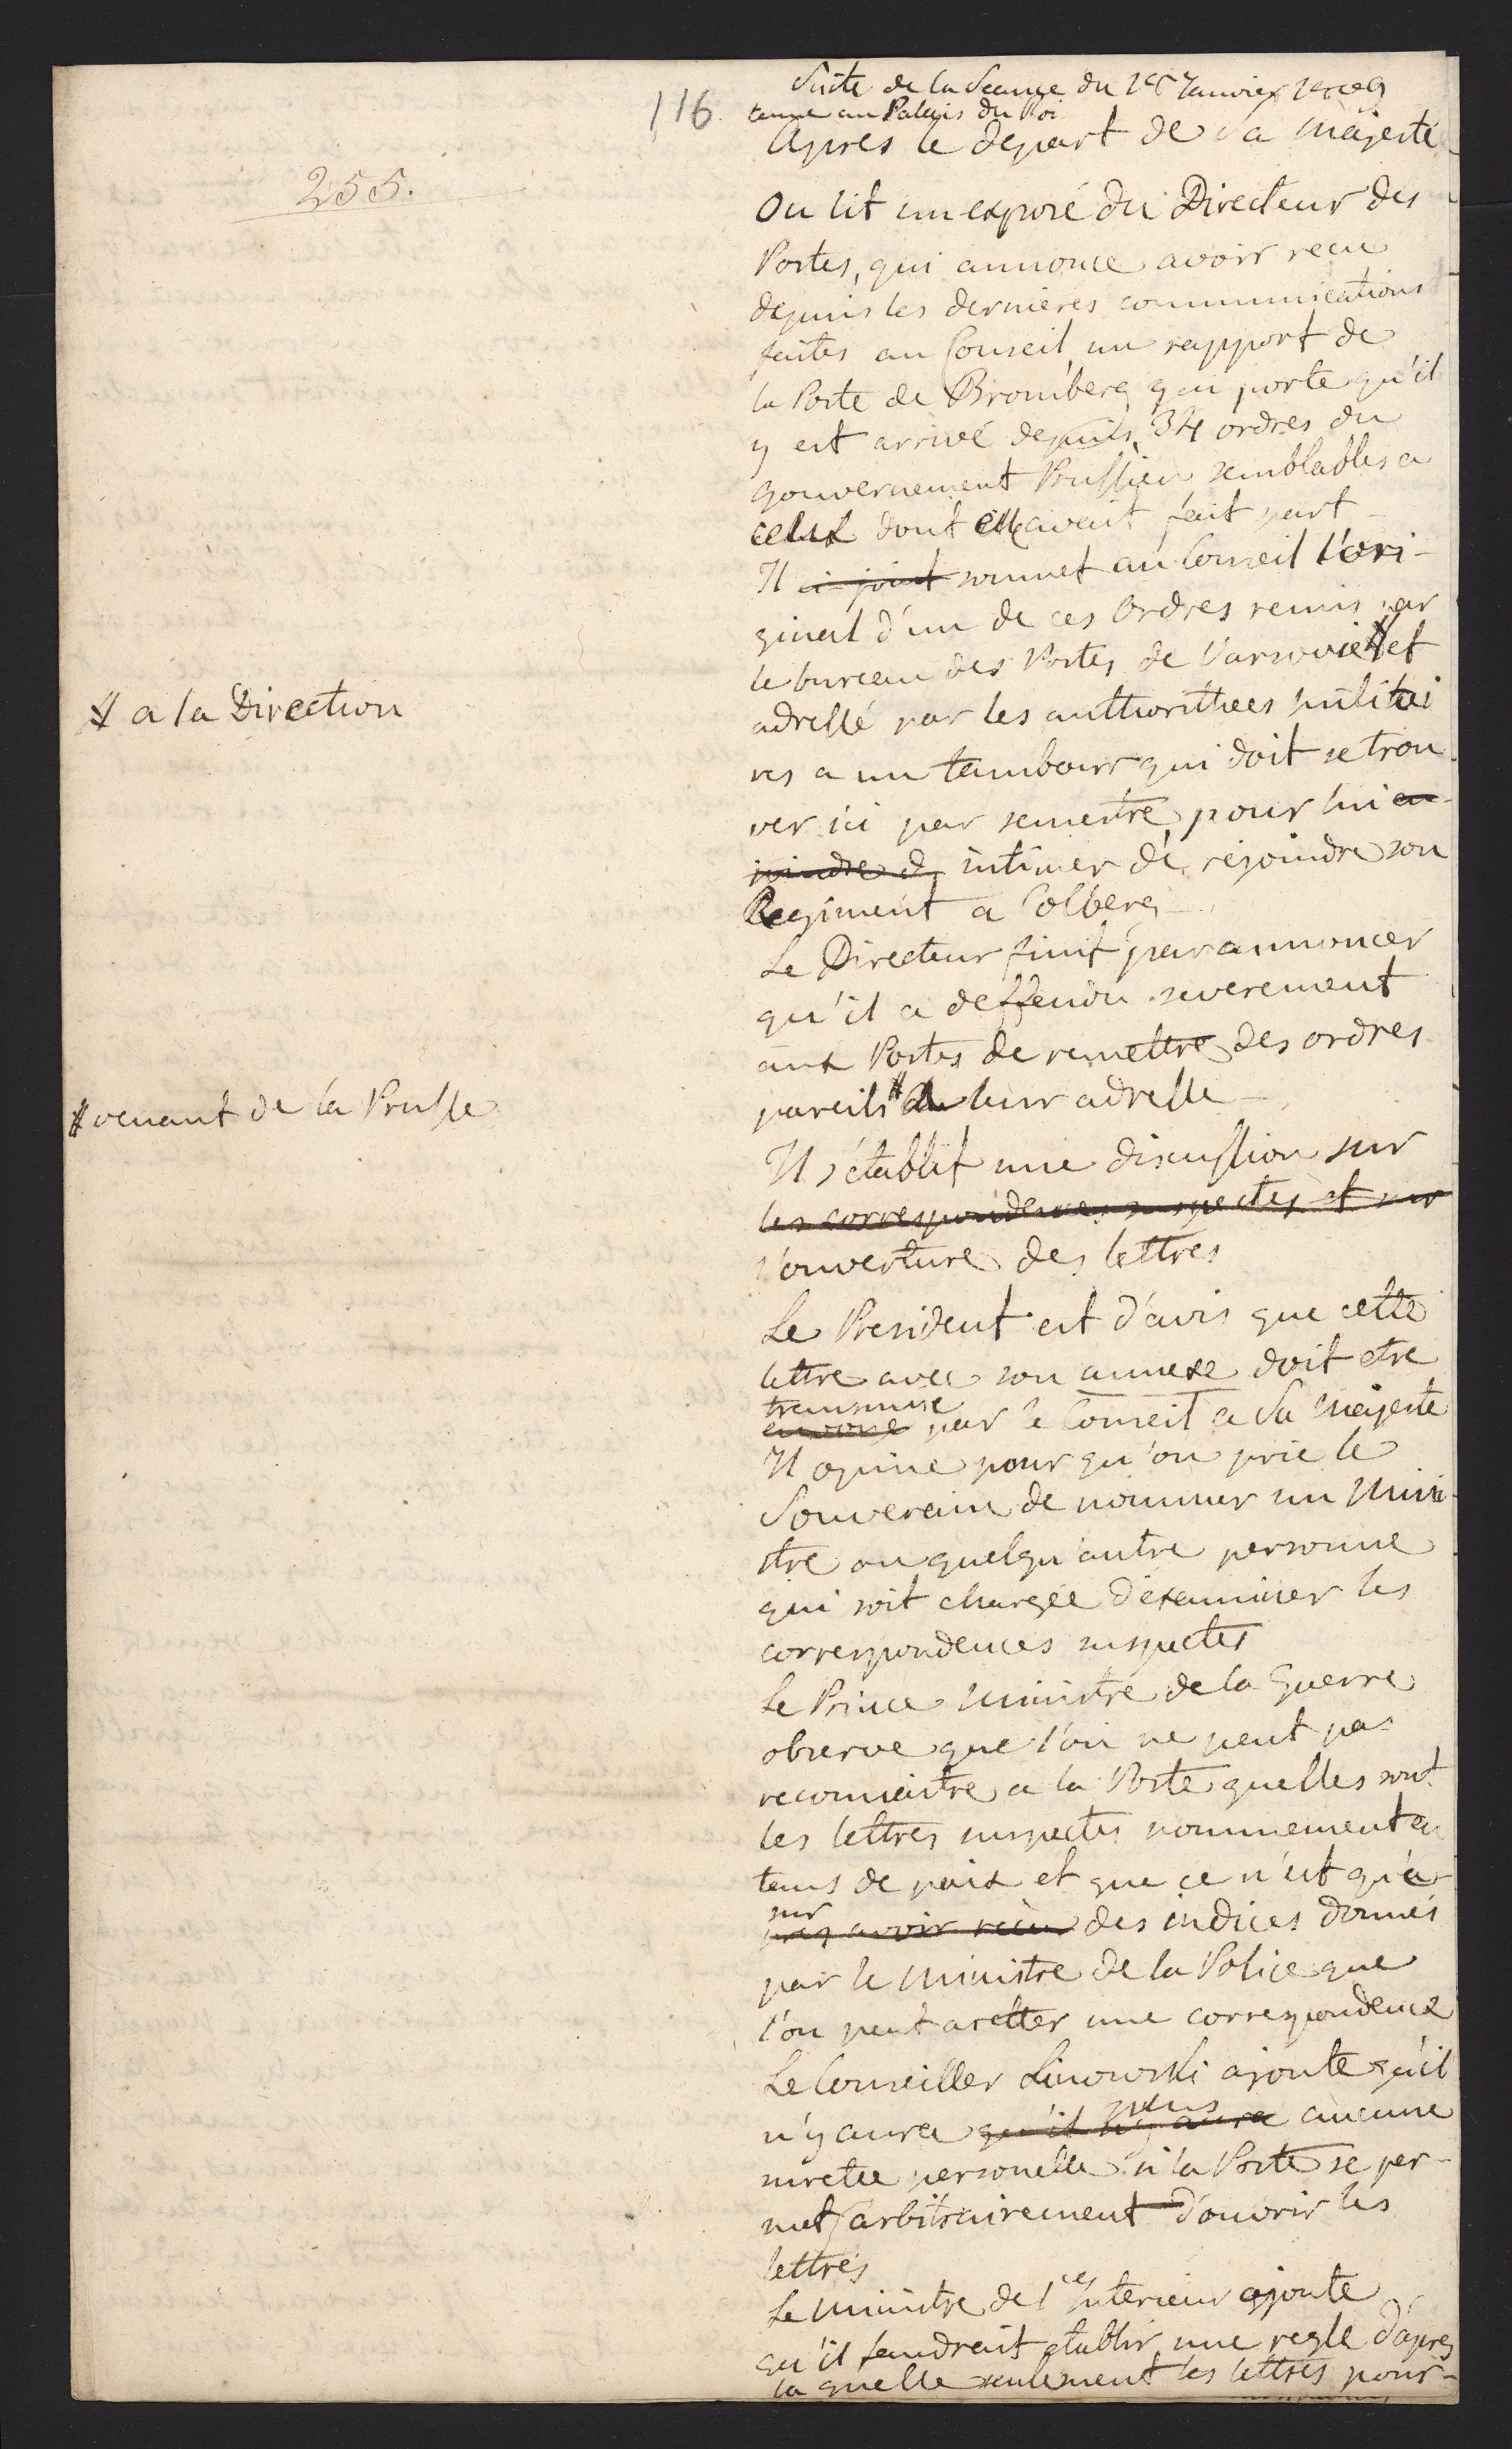 116.
255.
Suite de la Seance du 1er Janvier 1809
tenue au Palais du Roi
Apres le depart de Sa Majesté
On lit un exposé du Directeur des
Postes, qui annonce avoir recu
depuis les dernieres communications
faites au Conseil, un rapport de
la Poste de Bromberg qui porte qu'il
y est arrivé depuis 34 ordres du
Gouvernement Prussien semblables a
celux dont elle avait fait part
Il ci joint soumet au Conseil l'ori-
ginal d'un de ces Ordres remis par
le bureau des Postes de Varsovie # et
# a la Direction
adressé par les authorithees militai
res a un tambour qui doit se trou
ver ici par semestre, pour lui en-
joindre d intimer de rejoindre son
Regiment a Colberg
Le Directeur finit par annoncer
qu'il a deffendu severement
aux Postes de remettre des ordres
pareils # a leur adresse
# venant de la Prusse
Il s'etablit une discussion sur
les correspondences suspectes et sur
l'ouverture des lettres
Le President est d'avis que cette
lettre avec son annexe doit etre
transmise
envoye par le Conseil a Sa Majeste
Il opine pour qu'on prie le
Souverain de nommer un Mini
stre ou quelqu'autre personne
qui soit chargée d'examiner les
correspondences suspectes
Le Prince Ministre de la Guerre
observe que l'on ne peut pas
reconnaitre a la Poste quelles sont
les lettres suspectes nommement en
tems de paix et que ce n'est qu'a
sur
pres avoir recu des indices donnés
par le Ministre de la Police que
l'on peut aretter une correspondence
Le Conseiller Linowski ajoute qu'il
n'y aura qu'il n'y aura plus aucune
suretee personelle si la Poste se per-
met arbitrairement d'ouvrir les
lettres
Le Ministre de l'Interieur ajoute
qu'il faudrait etablir une regle d'apres
la quelle seulement les lettres pour-